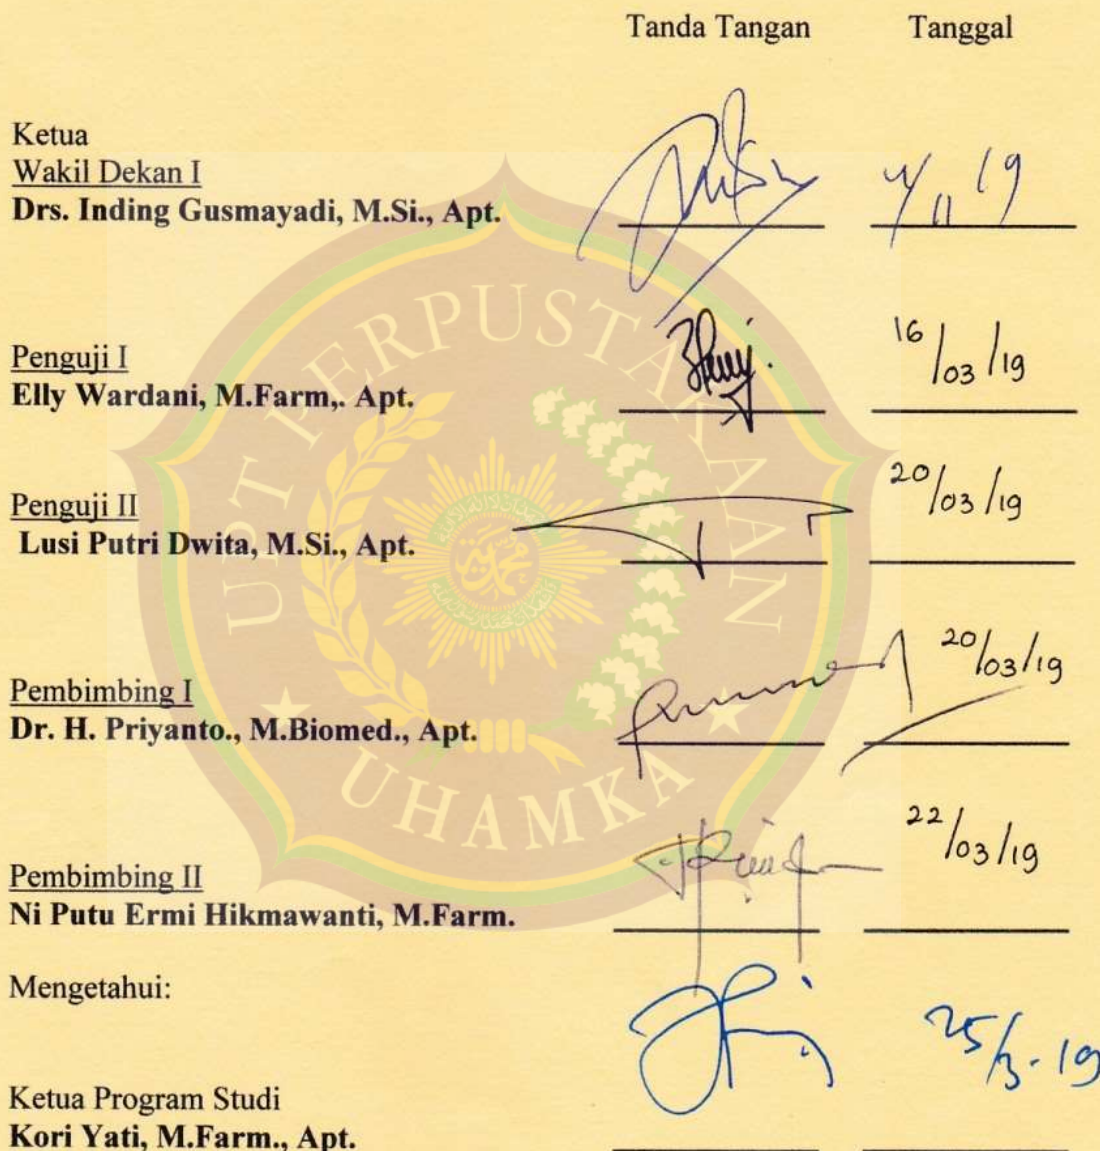 Tanda Tangan Tanggal
Ketua
Wakil Dekan I
Drs. Inding Gusmayadi, M.Si., Apt.
Penguji I
Elly Wardani, M.Farm,. Apt. 16/03/19
Penguji II 20/03/19
Lusi Putri Dwita, M.Si., Apt.
Pembimbing I 20/03/19
Dr. H. Priyanto., M.Biomed., Apt.
Pembimbing II 22/03/19
Ni Putu Ermi Hikmawanti, M.Farm.
Mengetahui:
25/3-19
Ketua Program Studi
Kori Yati, M.Farm., Apt.
UPT PERPUSTAKAAN
UHAMKA